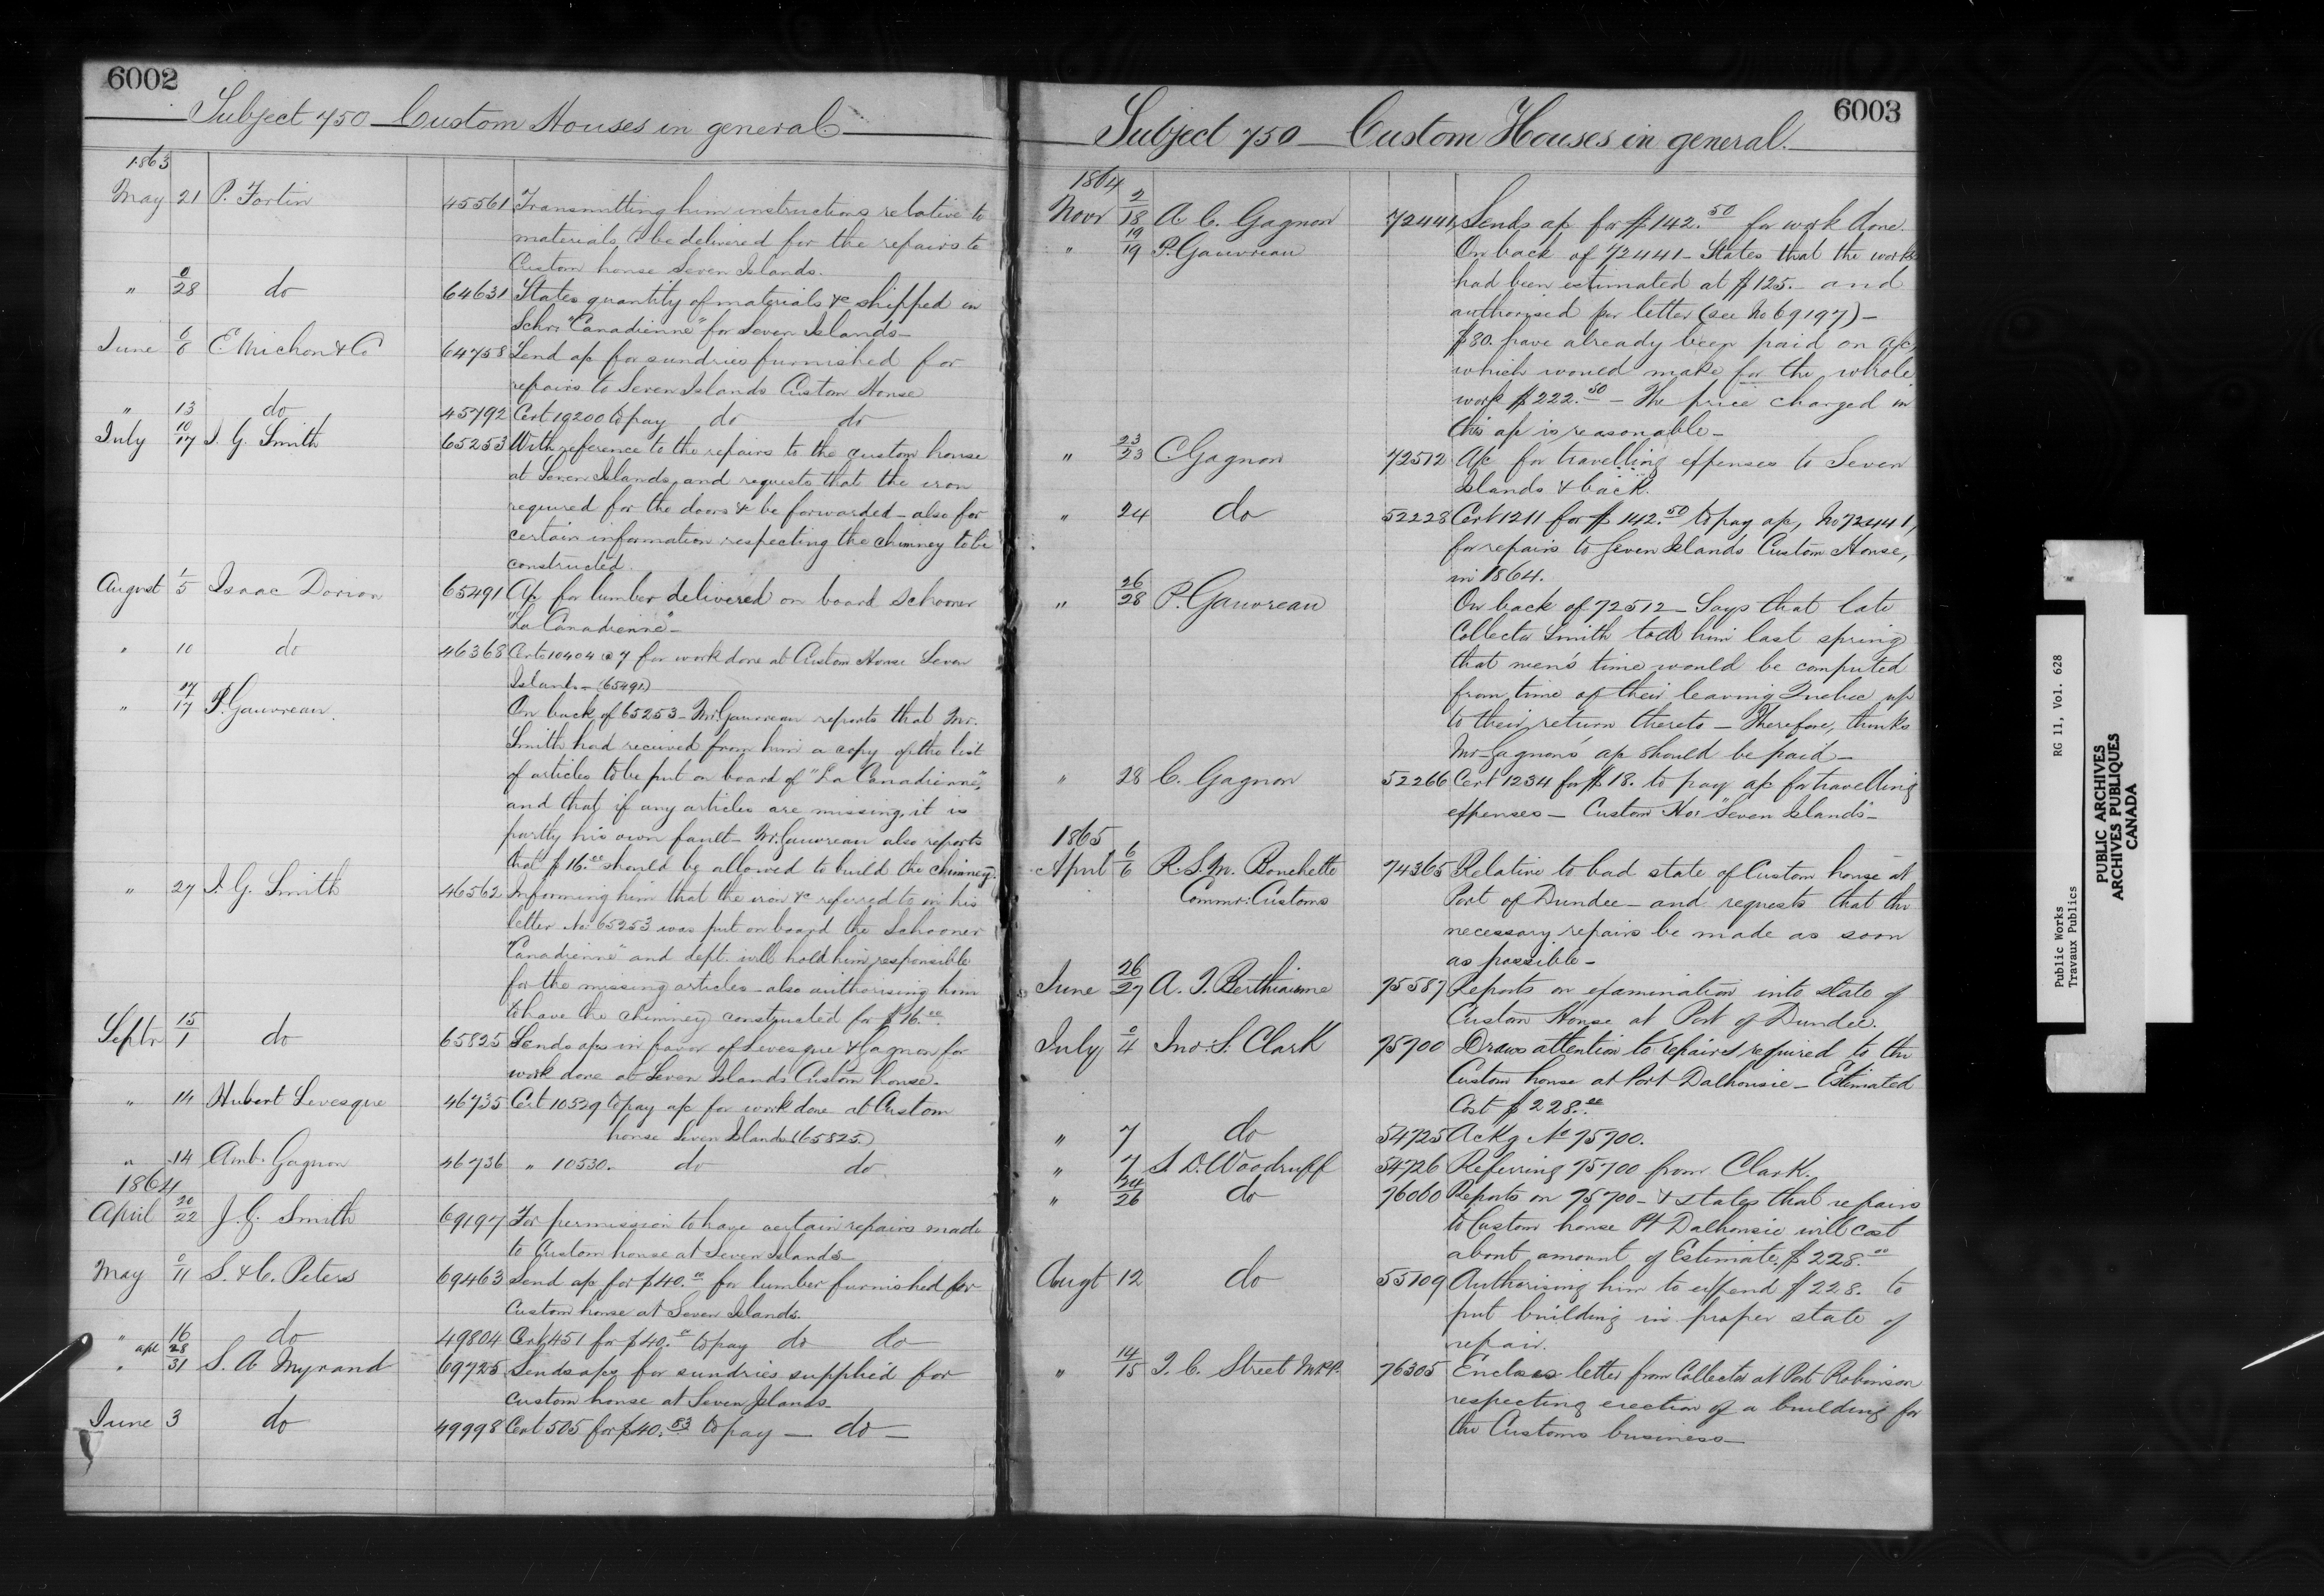 6002
Subject 750 Custom Houses in general
1863
May 21 P. Fortin 45561 Transmitting him instructions relative to
materials to be delivered for the repairs to
Custom house Seven Islands.
" 0/28 do 64631 States quantity of materials &c shipped on
Schr. "Canadienne" for Seven Islands—
June 6/8 E. Michon & Co 64758 Send a/c for sundries furnished for
repairs to Seven Islands Custom House
" 13 do 45792 Cert 19200 to pay do do
July 10/17 J. G. Smith 65253 With reference to the repairs to the custom house
at Seven Islands, and requests that the iron
required for the doors &c be forwarded—also for
certain information respecting the chimney to be
constructed.
August 1/5 Isaac Dorion 65491 A/c for lumber delivered on board Schooner
"La Canadienne"—
" 10 do 46368 Certs 10404 @ 7 for work done at Custom House Seven
Islands—(65491)
" 17/17 P. Gauvreau. On back of 65253—Mr. Gauvreau reports that Mr.
Smith had received from him a copy of the list
of articles to be put on board of "La Canadienne",
and that if any articles are missing, it is
partly his own fault—Mr. Gauvreau also reports
that $16.00 should be allowed to build the chimney.
" 27 J. G. Smith 46562 Informing him that the iron &c referred to in his
letter No. 65253 was put on board the Schooner
"Canadienne" and dept. will hold him responsible
for the missing articles—also authorising him
to have the chimney constructed for $16.00
Septr 15/1 do 65825 Sends a/cs in favor of Levesque & Gagnon for
work done at Seven Islands Custom house.
" 14 Hubert Levesque 46735 Cert 10529 to pay a/c for work done at Custom
house Seven Islands (65825.)
" 14 Amb. Gagnon 46736 " 10530. do do
1864
April 20/22 J. G. Smith 69197 For permission to have certain repairs made
to Custom house at Seven Islands—
May 0/11 S. & C. Peters 69463 Send a/c for $40.00 for lumber furnished for
Custom house at Seven Islands.
" 16 do 49804 Cert 451 for $40.00 to pay do do
" apl 28/31 S. A. Myrand 69725 Sends a/cs for sundries supplied for
Custom house at Seven Islands—
June 3 do 49998 Cert 505 for $40.83 to pay — do —
6003
Subject 750 — Custom Houses in general.
1864
Novr 2/18 A. C. Gagnon 72441 Sends a/c for $142.50 for work done.
" 19/19 P. Gauvreau On back of 72441—States that the works
had been estimated at $125.— and
authorised per letter (see No 69197)—
$80. have already been paid on a/c,
which would make for the whole
work $222.50 — The price charged in
this a/c is reasonable—
" 23/23 C Gagnon 72512 A/c for travelling expenses to Seven
Islands & back.
" 24 do 52228 Cert 1211 for $142.50 to pay a/c, No 72441,
for repairs to Seven Islands Custom House,
in 1864.
" 26/28 P. Gauvreau On back of 72512—Says that late
Collector Smith told him last spring
that men's time would be computed
from time of their leaving Quebec up
to their return thereto—Therefore, thinks
Mr. Gagnon's a/c should be paid—
" 28 C. Gagnon 52266 Cert 1234 for $18. to pay a/c for travelling
expenses—Custom Hse "Seven Islands"—
1865
April 6/6 R. S. M. Bouchette 74365 Relative to bad state of Custom house at
Commr. Customs Port of Dundee—and requests that the
necessary repairs be made as soon
as possible—
June 26/27 A. T. Berthiaume 75587 Reports on examination into state of
Custom House at Port of Dundee.
July 0/4 Jno. S. Clark 75700 Draws attention to repairs required to the
Custom house at Port Dalhousie—Estimated
Cost $228.00
" 7 do 54725 Ackg No 75700.
" 7 S. D. Woodruff 54726 Referring 75700 from Clark.
" 24/26 do 76060 Reports on 75700—& states that repairs
to Custom house Pt Dalhousie will cost
about amount of Estimate, $228.00
Augt 12 do 55109 Authorising him to expend $228. to
put building in proper state of
repair.
" 14/15 T. C. Street M.P.P. 76305 Encloses letter from Collector at Port Robinson
respecting erection of a building for
the Customs business—
Public Works RG 11, Vol. 628
Travaux Publics
PUBLIC ARCHIVES
ARCHIVES PUBLIQUES
CANADA